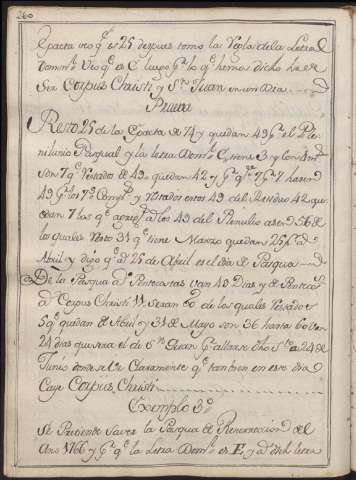 260
Epacta veo q.e es 25 despues tomo la Regla de la Letra
Domin.l Veo q.e es C luego p.r lo q.e hemos dicho ha de
Ser Corpus Christi y S.n Juan en un Dia
Prueva
Resto 25 de la Epacta de 74 y quedan 49 p.r el Ple
nilunio Pasqual y la letra Dom.l C, tiene 3 y con 4
son 7 q.e Restados de 49 quedan 42 y p.r q.e 7 p.r 7 hacen
49 los 7 y Restados estos 49 del Residuo 42 que
dan 7 las q.e a los 49 del Plenilunio hacen 56 de
los quales Resto 31 q.e tiene Marzo quedan 25 p.a
Abril y digo q.e el 25 de Abril es el dia de Pasqua
De la Pasqua a Pentecostes van 49 Dias y de Pentecos.
a Corpus Christi 11 seran 60 de los quales Restados
5 q.e quedan de Abril y 31 de Mayo son 36 hasta 60 van
24 dias que sera el de S.n Juan p.r allarse dho S.to a 24 de
Junio donde se ve Claramente q.e tambien en este dia
Caye Corpus Christi
Exemplo 3.o
Se Pretende Saver la Pasqua de Resurreccion del
Ano 1766 y p.r q.e la Letra Dom.l es E, y a del letra